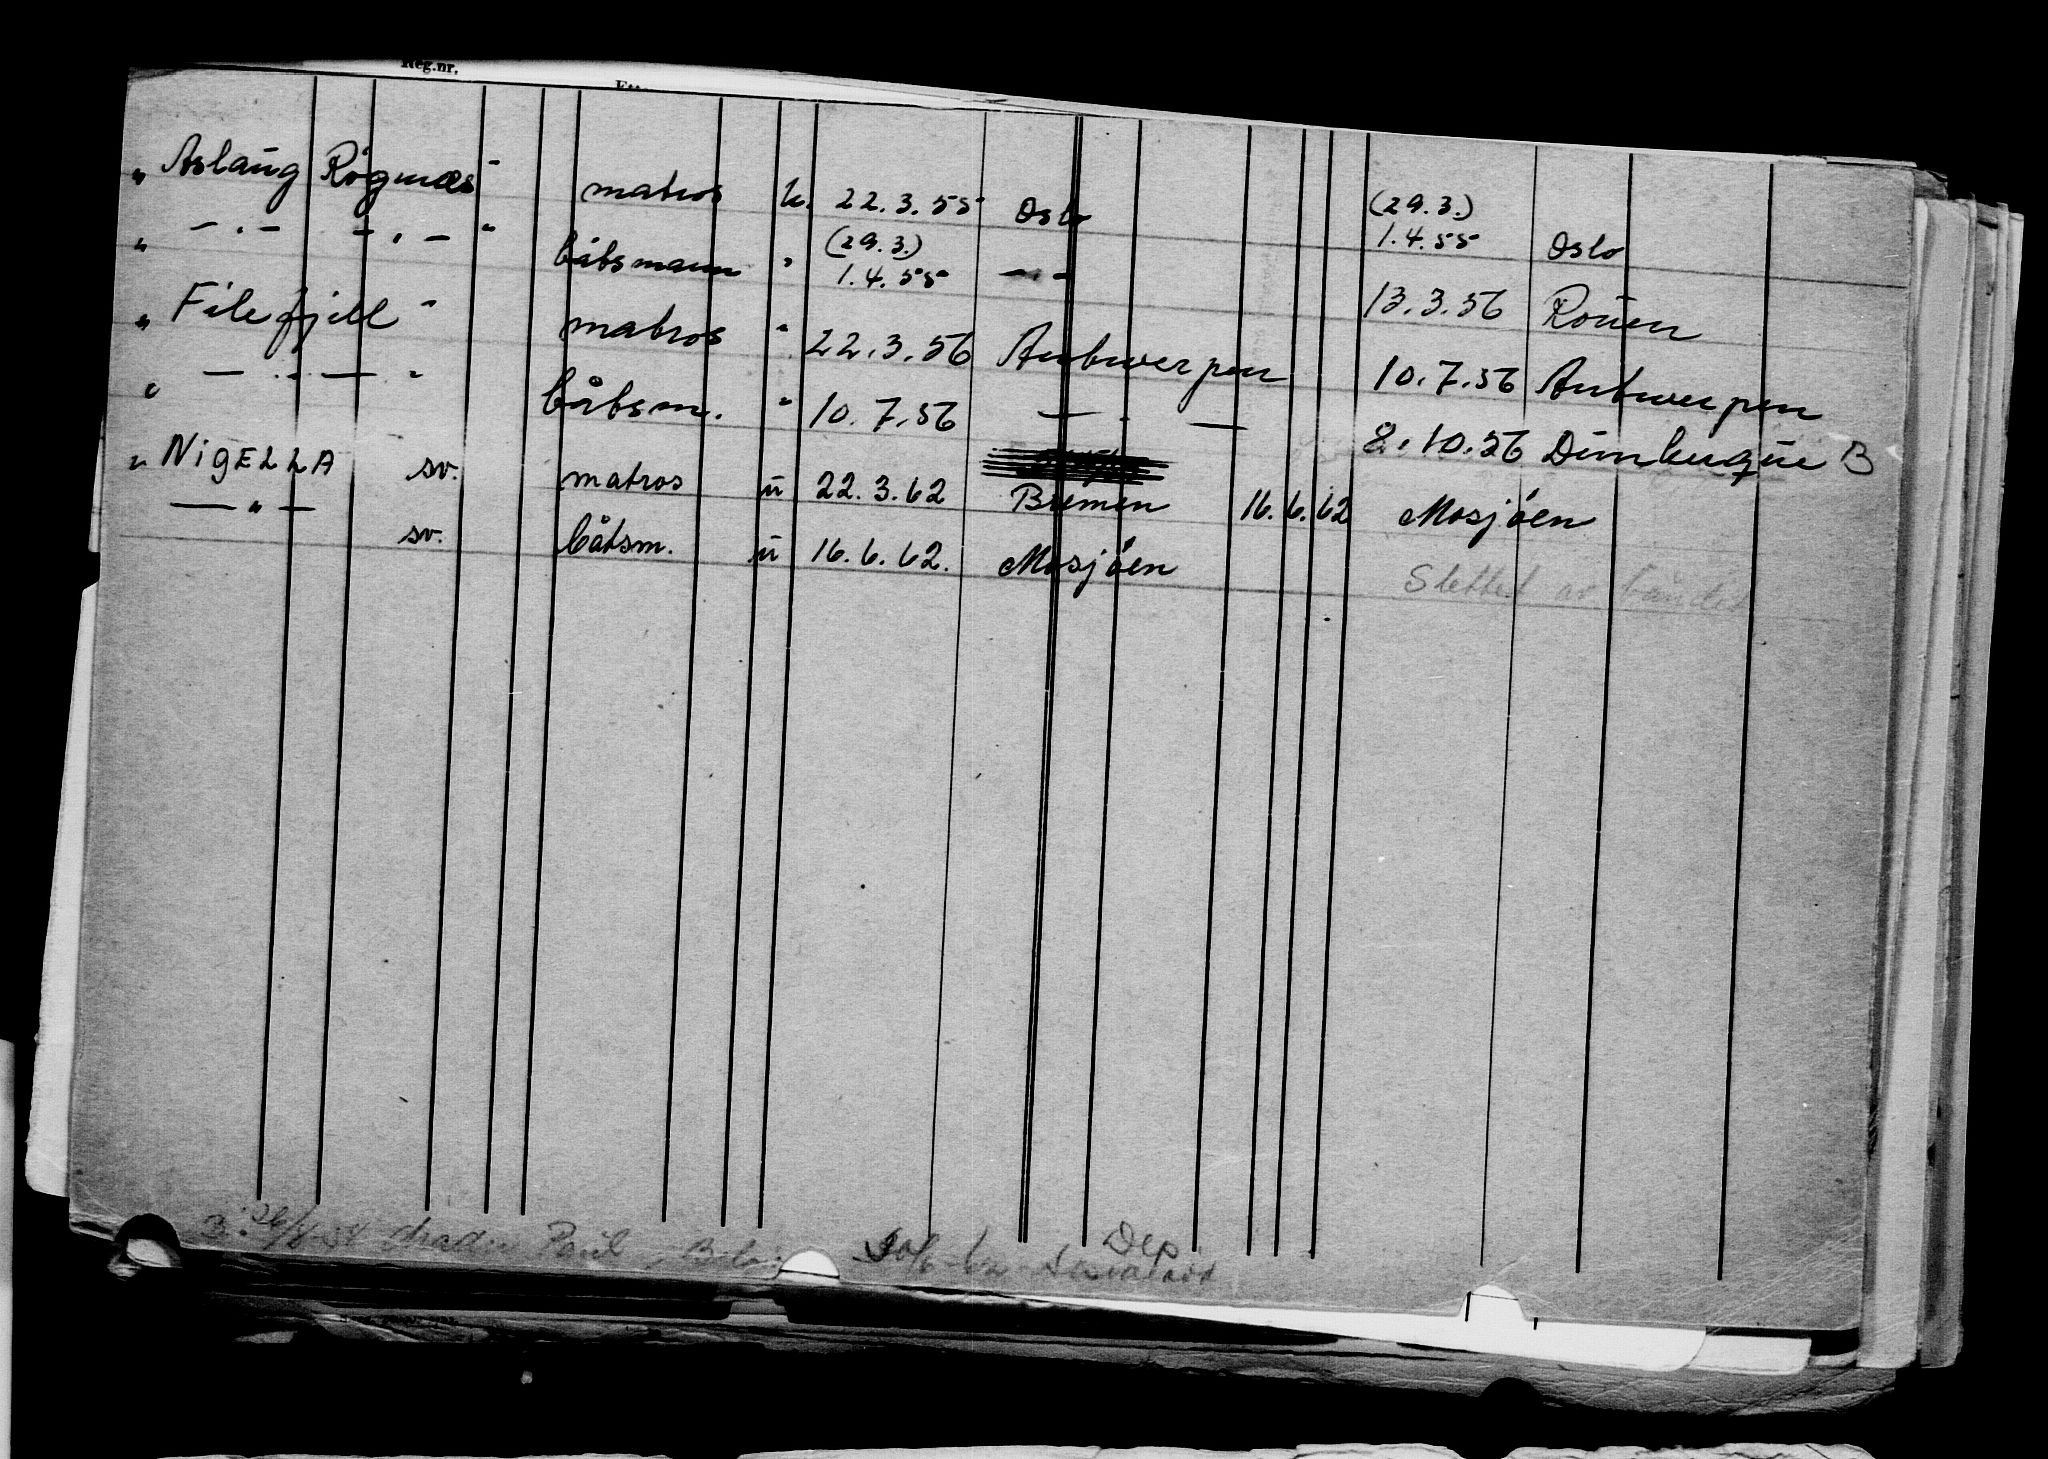 Reg.nr.
" Aslaug Rögnæs " matros u. 22.3.55 Oslo (29.3.) 1.4.55 Oslo
" — . — — . — " båtsmann " (29.3.) 1.4.55 — " — 13.3.56 Rouen
" Filefjell " matros " 22.3.56 Antwerpen 10.7.56 Antwerpen
" — " — " båtsm. " 10.7.56 — " — 8.10.56 Dunkerque B
" NIGELLA sv. matros u 22.3.62 Bremen 16.6.62 Mosjöen
— " — sv. båtsm. u 16.6.62. Mosjöen
Slettet av
B: Paul
Dep